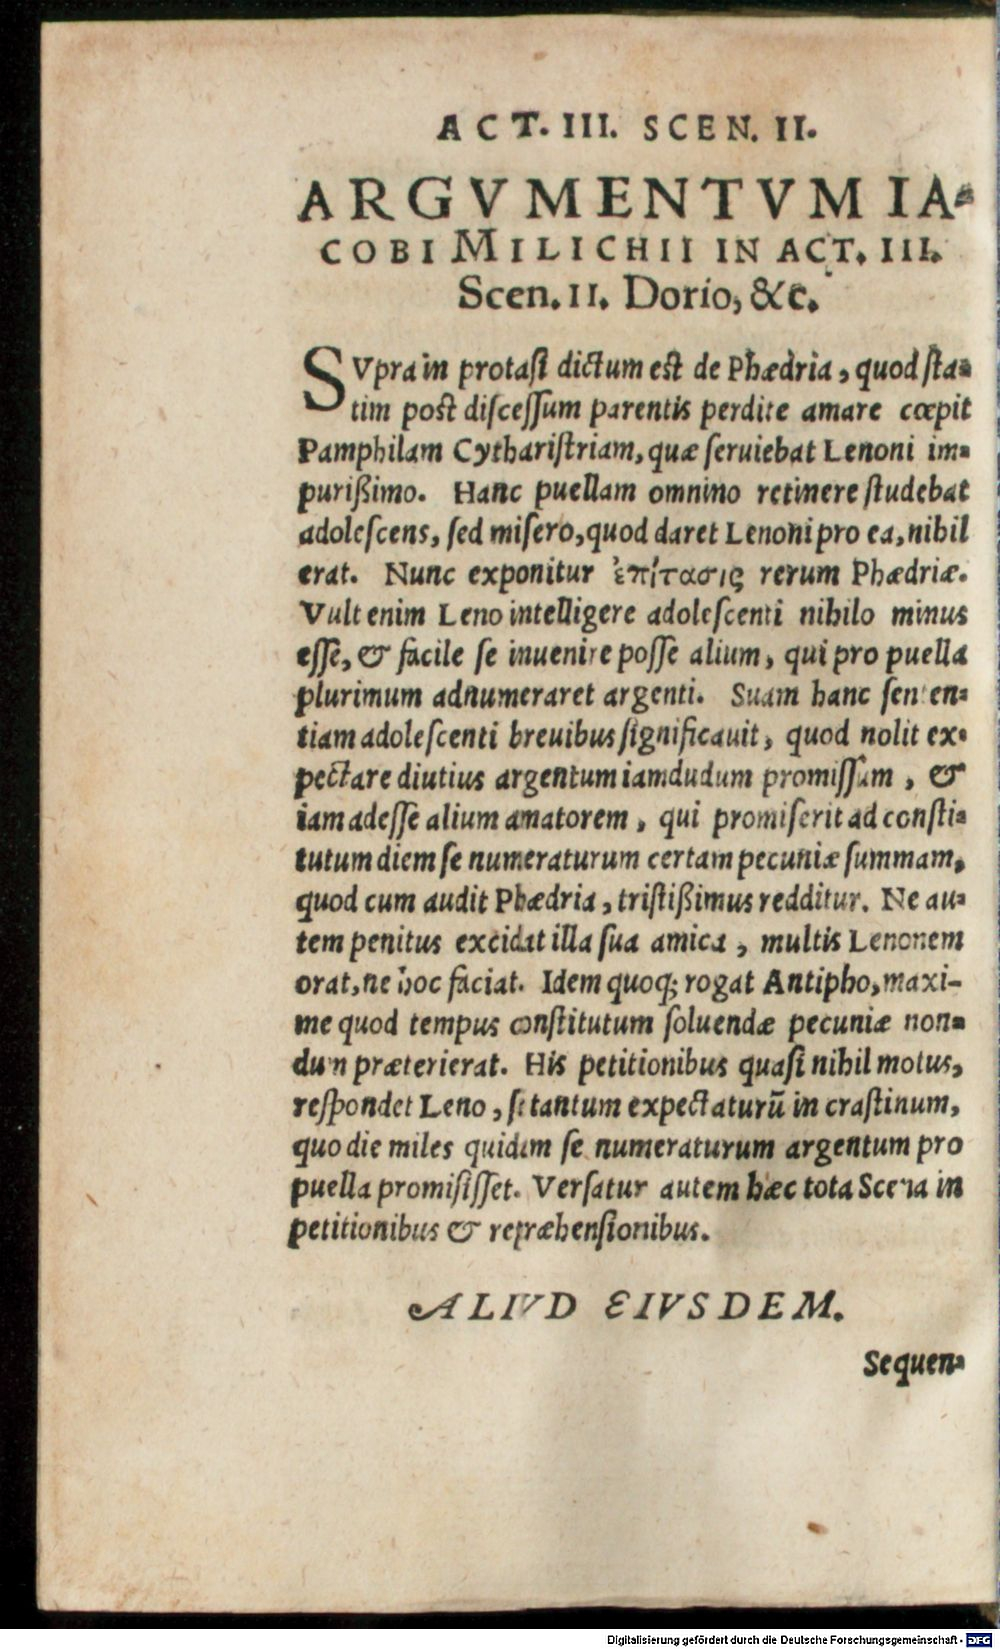 ACT. III. SCEN. II.
ARGVMENTVM IA-
COBI MILICHII IN ACT. III.
Scen. II. Dorio, &c.
SVpra in protaſi dictum est de Phædria, quod ſta-
tim post diſceſſum parentis perdite amare cœpit
Pamphilam Cythariſtriam, quæ ſeruiebat Lenoni im-
purißimo. Hanc puellam omnino retinere ſtudebat
adoleſcens, ſed miſero, quod daret Lenoni pro ea, nihil
erat. Nunc exponitur ἐπίτασις rerum Phædriæ.
Vult enim Leno intelligere adoleſcenti nihilo minus
eſſe, & facile ſe inuenire poſſe alium, qui pro puella
plurimum adnumeraret argenti. Suam hanc ſenten-
tiam adoleſcenti breuibus ſignificauit, quod nolit ex-
pectare diutius argentum iamdudum promiſſum, &
iam adeſſe alium amatorem, qui promiſerit ad conſti-
tutum diem ſe numeraturum certam pecuniæ ſummam,
quod cum audit Phædria, triſtißimus redditur. Ne au-
tem penitus excidat illa ſua amica, multis Lenonem
orat, ne hoc faciat. Idem quoq; rogat Antipho, maxi-
me quod tempus conſtitutum ſoluendæ pecuniæ non-
dum præterierat. His petitionibus quaſi nihil motus,
reſpondet Leno, ſe tantum expectaturũ in craſtinum,
quo die miles quidam ſe numeraturum argentum pro
puella promiſiſſet. Verſatur autem hæc tota Scena in
petitionibus & repræhenſionibus.
ALIVD EIVSDEM.
Sequen-
Digitalisierung gefördert durch die Deutsche Forschungsgemeinschaft - DFG